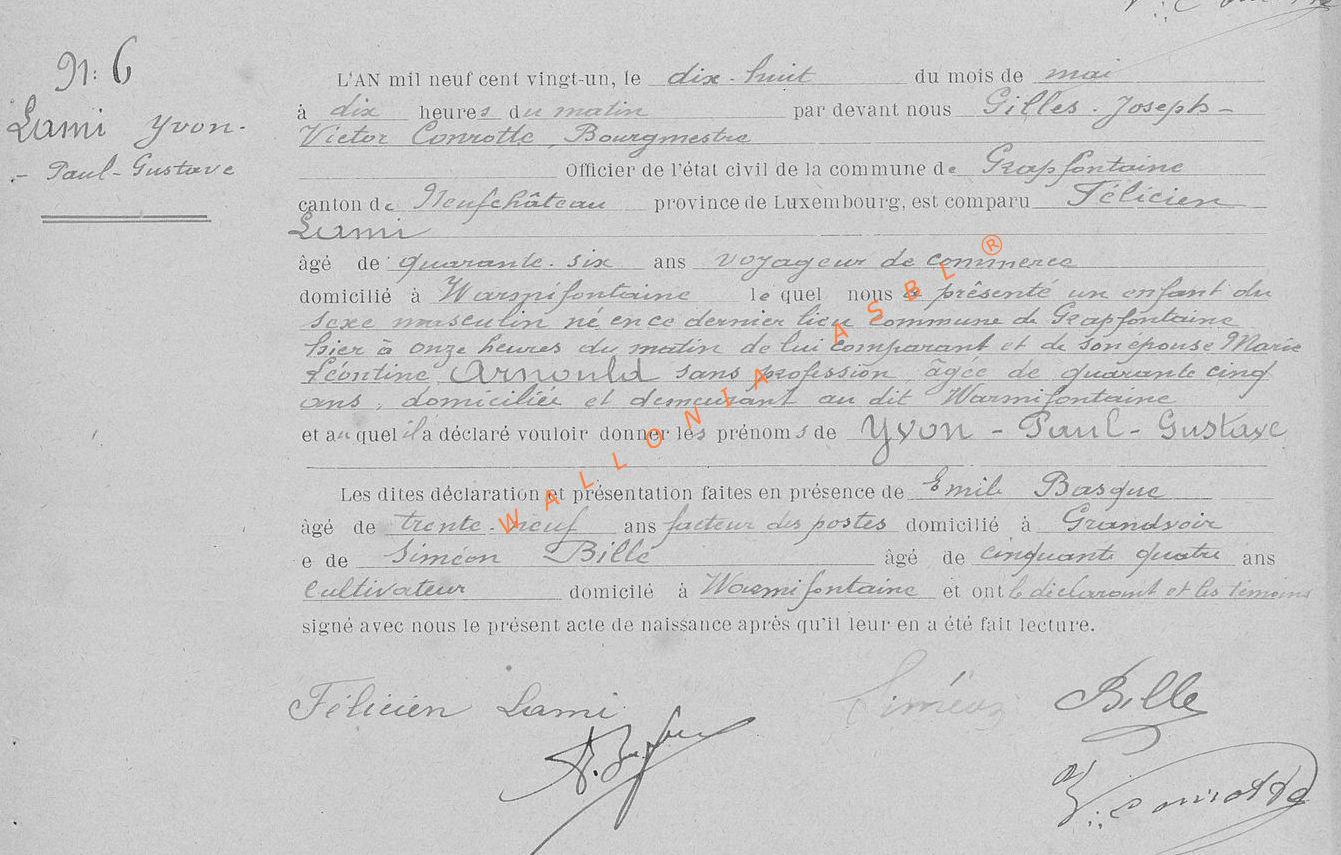 N: 6
Lami Yvon-
- Paul-Gustave
L'AN mil neuf cent vingt-un, le dix-huit du mois de mai
à dix heures du matin par devant nous Gilles-Joseph-
Victor Conrotte, Bourgmestre
Officier de l'état civil de la commune de Grapfontaine
canton de Neufchâteau province de Luxembourg, est comparu Félicien
Lami
âgé de quarante-six ans voyageur de commerce
domicilié à Warmifontaine lequel nous a présenté un enfant du
sexe masculin né en ce dernier lieu commune de Grapfontaine
hier à onze heures du matin de lui comparant et de son épouse Marie
Léontine Arnould sans profession âgée de quarante cinq
ans, domiciliée et demeurant au dit Warmifontaine
et auquel il a déclaré vouloir donner les prénoms de Yvon - Paul - Gustave
Les dites déclaration et présentation faites en présence de Emile Basque
âgé de trente-neuf ans facteur des postes domicilié à Grandvoir
e de Siméon Bille âgé de cinquante quatre ans
cultivateur domicilé à Warmifontaine et ont le déclarant et les témoins
signé avec nous le présent acte de naissance après qu'il leur en a été fait lecture.
Félicien Lami Siméon Bille
V. Conrotte
WALLONIA ASBL ®